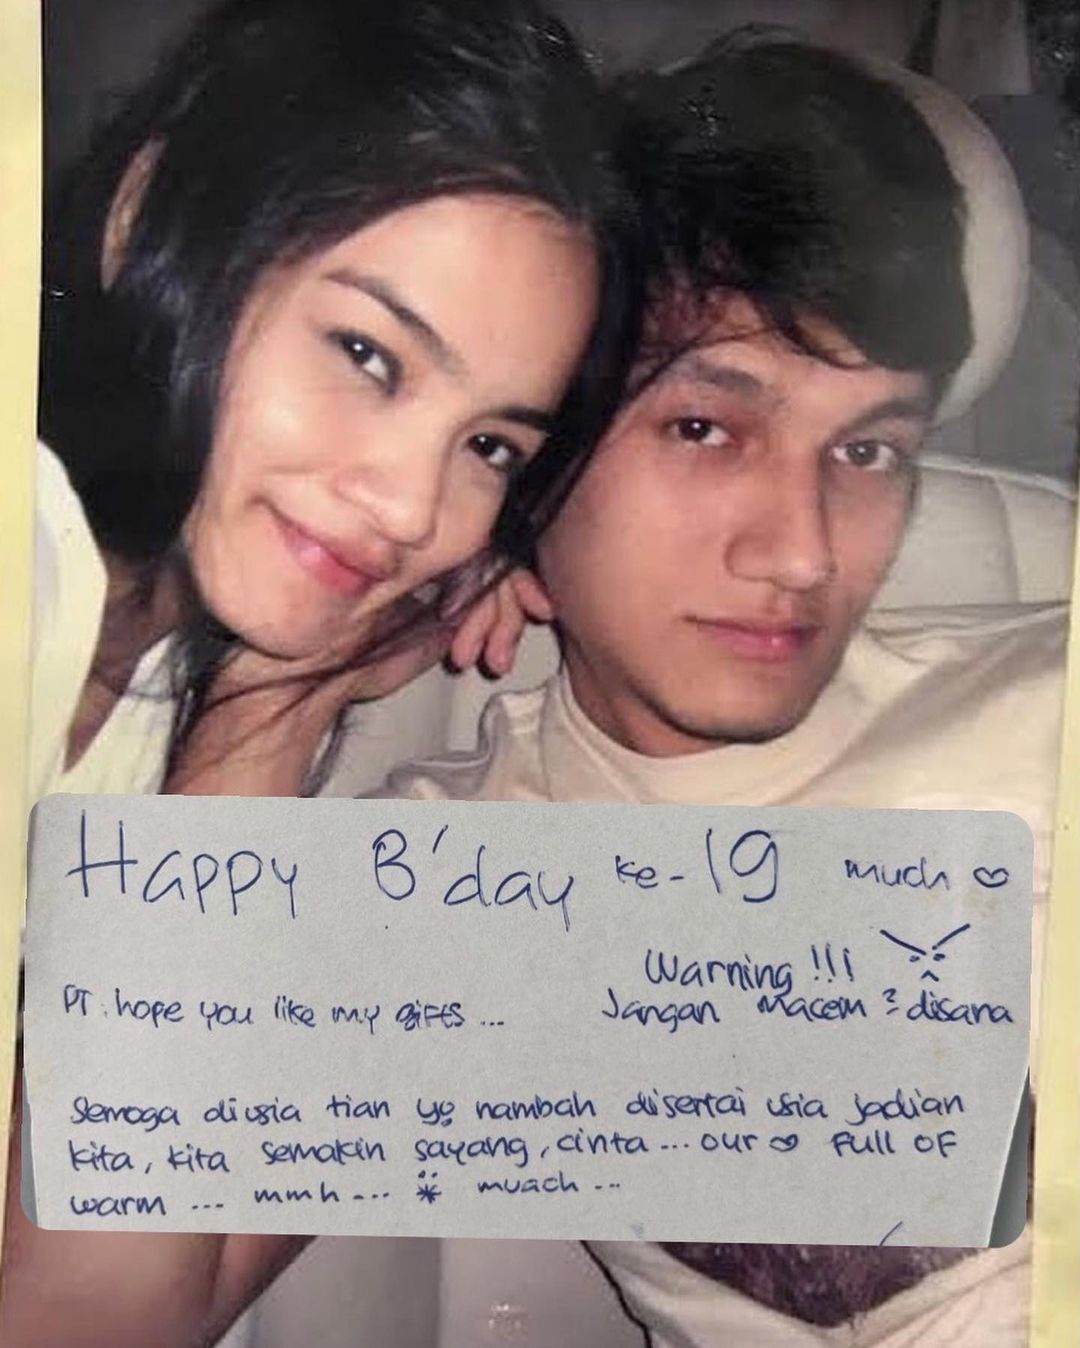 Happy B'day ke-19 much ♡
Warning !!!
PT. hope you like my gifts ... Jangan Macem² disana
Semoga diusia tian yg nambah disertai usia jadian
kita, kita semakin sayang, cinta ... our ♡ full of
warm ... mmh ... muach ...